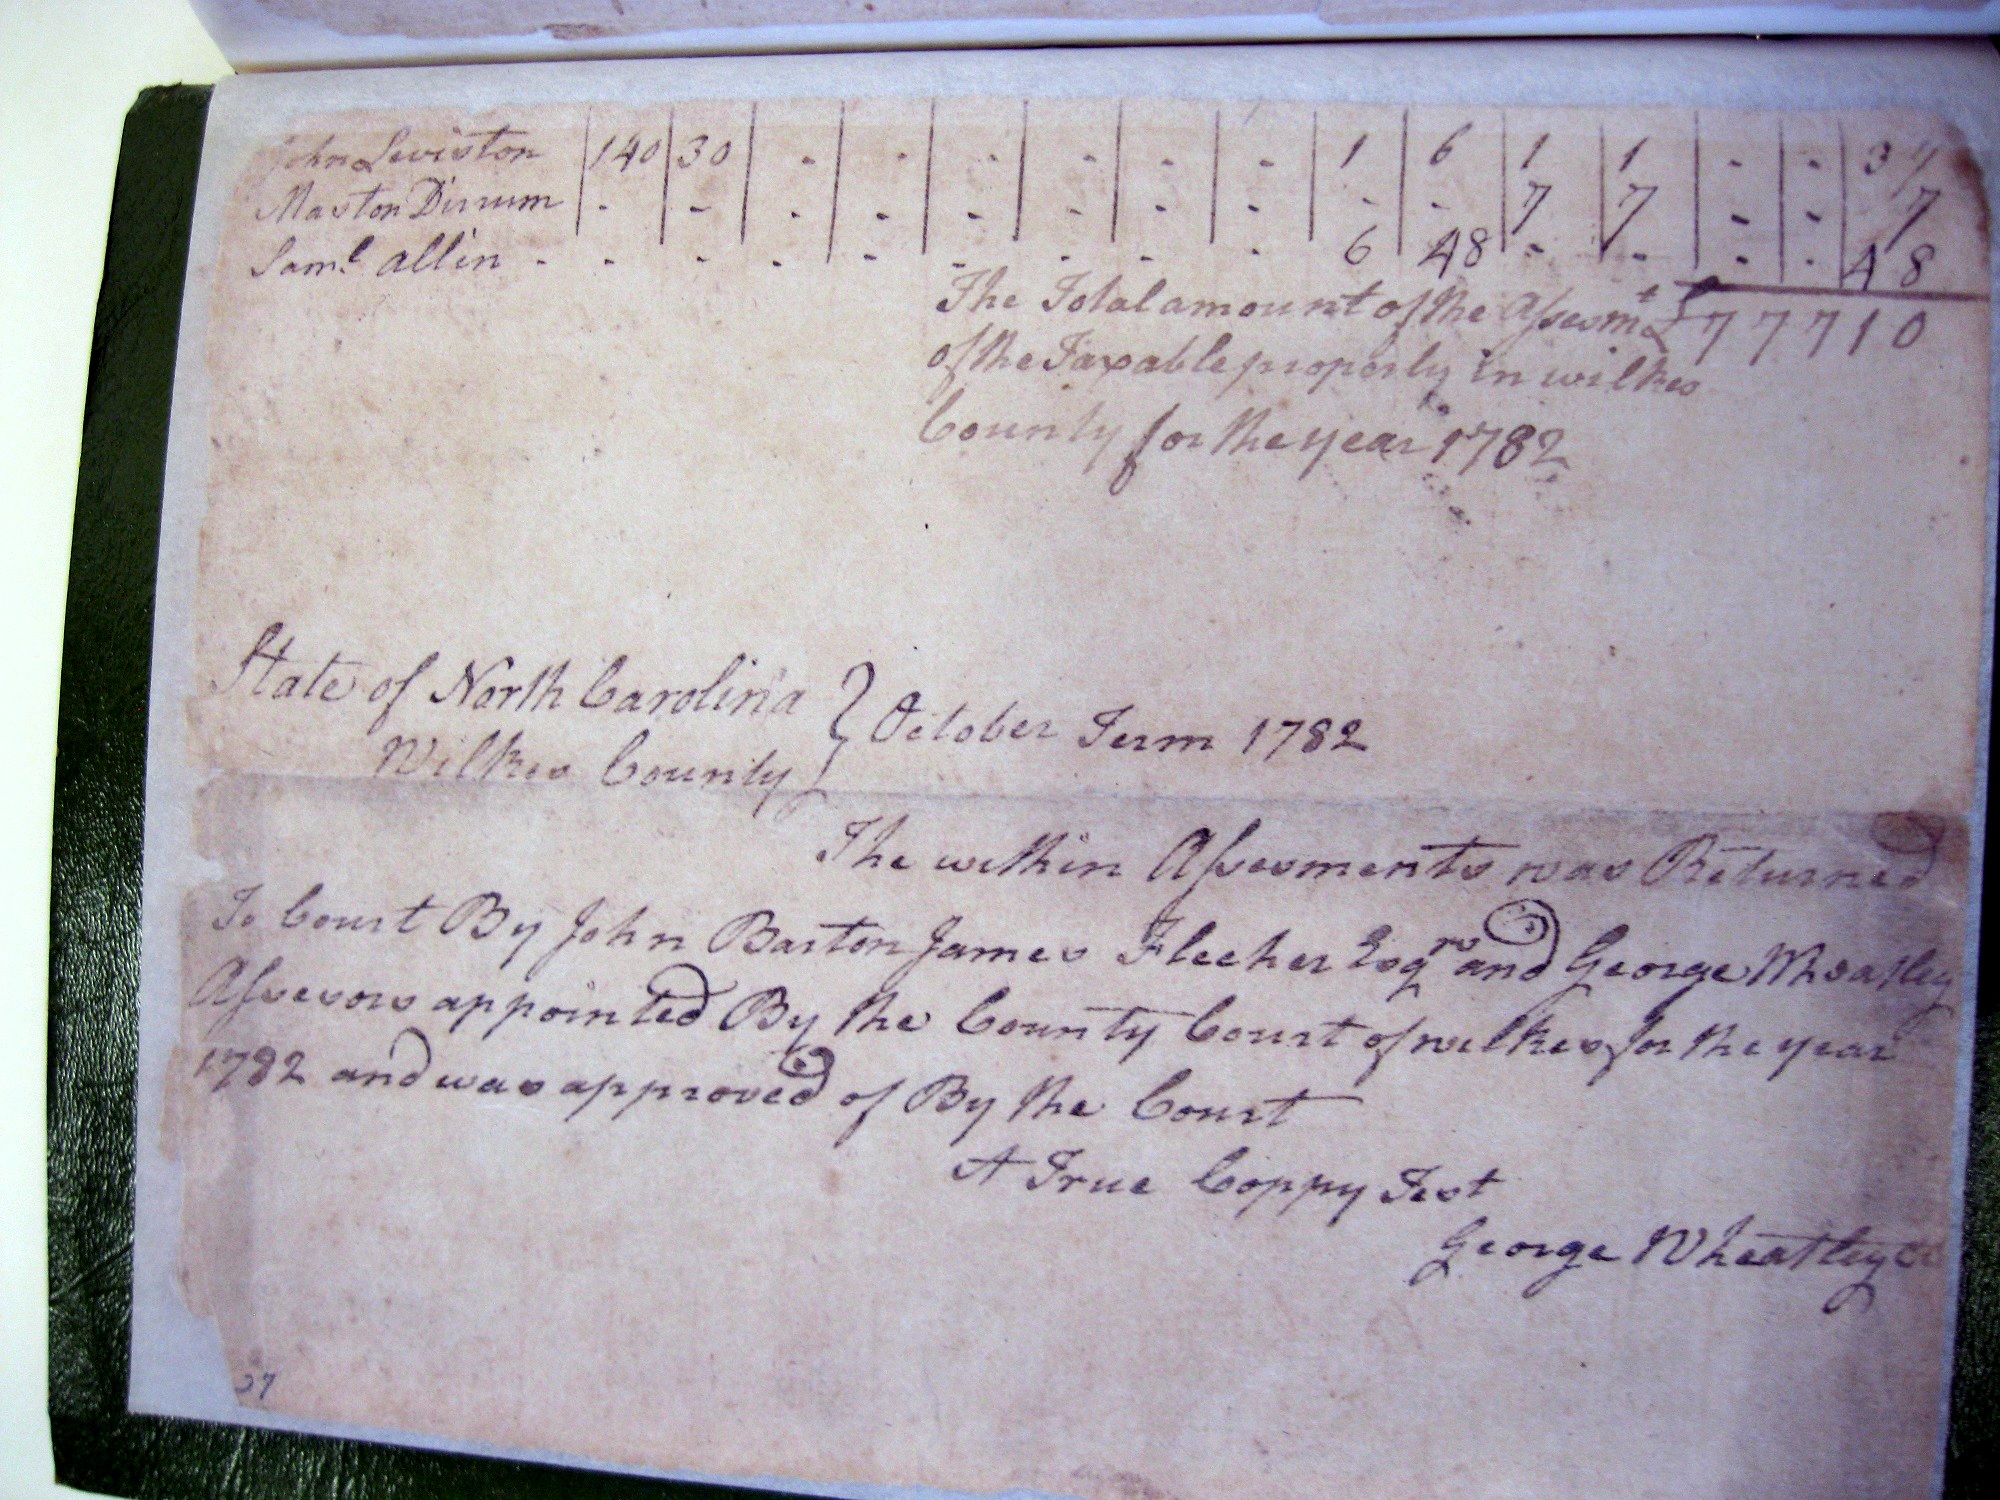 John Leviston 140 30 - - - - - - 1 6 1 1 - - 37
Maston Dirrum - - - - - - - - - - 7 7 - - 7
Saml. allin - - - - - - - - - 6 48 - - - - 48
The Total amount of the Assesmt £ 77710
of the Taxable properly in wilkes
County for the year 1782
State of North Carolina } October Term 1782
Wilkes County
The within Assesments was Returned
To Court By John Barton James Flecher Esqrs and George Wheatley
Assesors appointed By the County Court of wilkes for the year
1782 and was approved of By the Court
A True Coppy Test
George Wheatley
27